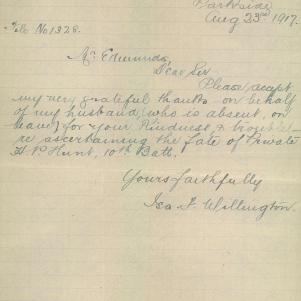 Parkside
Aug 23rd 1917.
File No 1328.
Mr Edmunds,
Dear Sir
Please accept
my very grateful thanks on behalf
of my husband, (who is absent, on
leave) for your kindness, & trouble
re ascertaining the fate of Private
H. P. Hunt, 10th Batt.
Yours faithfully
Isa F Willington.